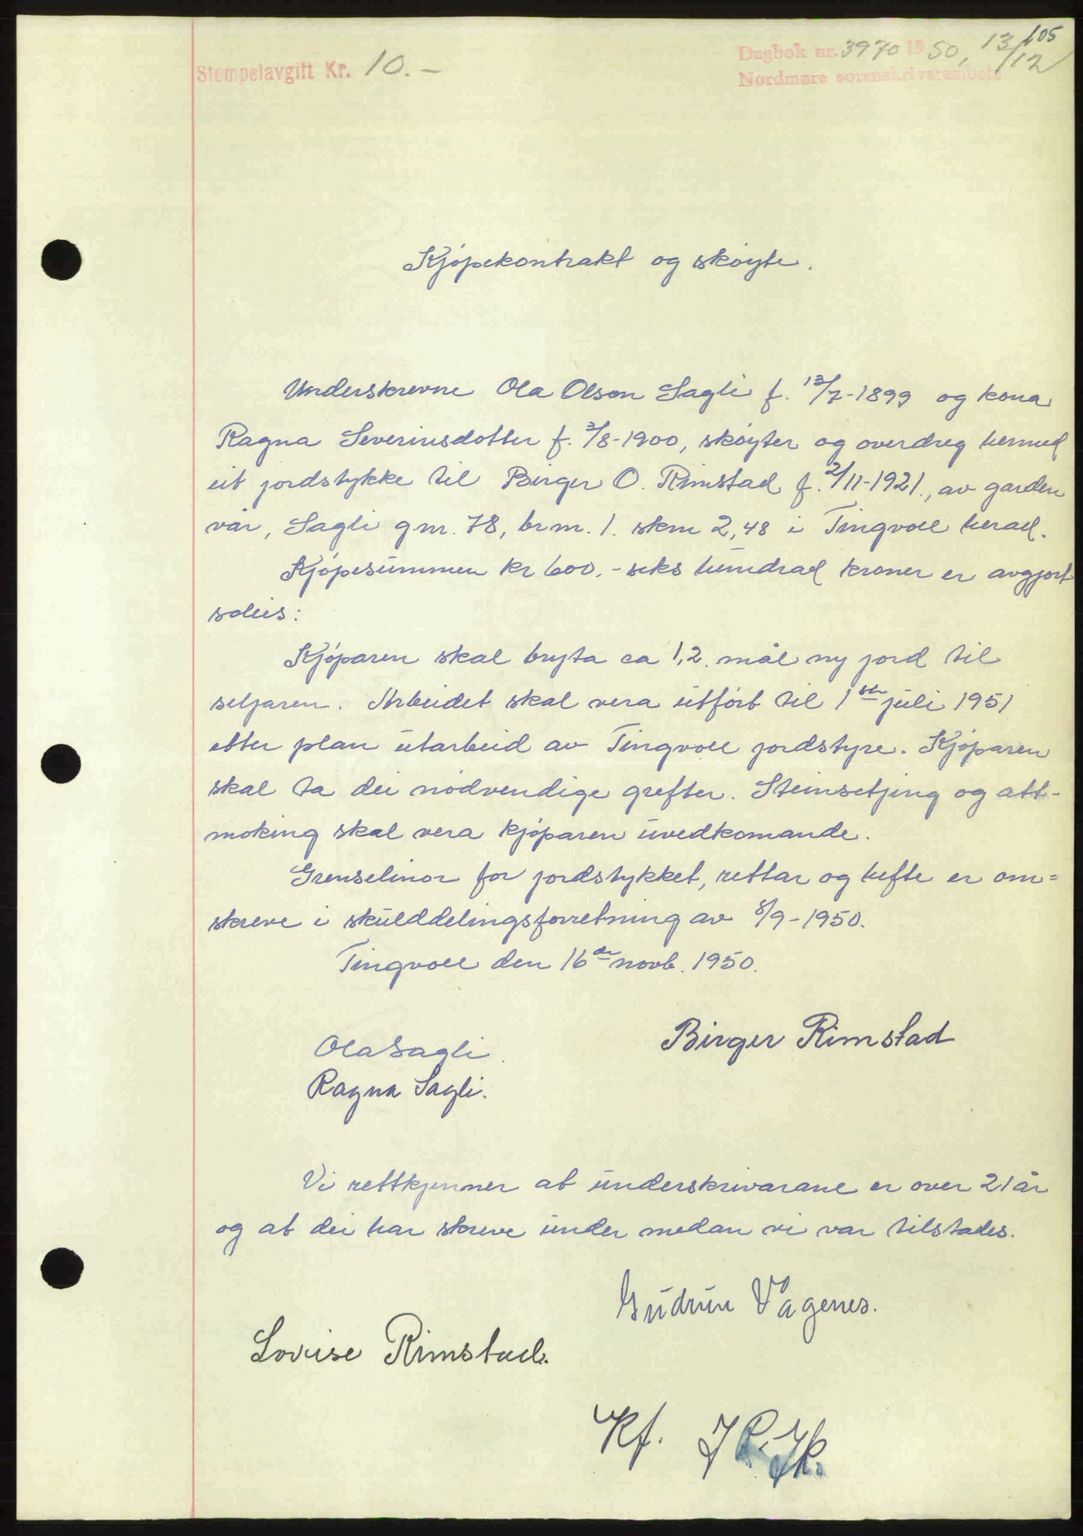 405
Stempelavgift Kr. 10.-
Dagbok nr. 3970 1950, 13/12
Nordmøre sorenskriverembete
Kjøpekontrakt og skøyte.
Underskrevne Ola Olson Sagli f. 13/7-1899 og kona
Ragna Severinsdotter f. 3/8-1900, skøyter og overdreg hermed
eit jordstykke til Birger O. Rimstad f. 2/11-1921., av garden
vår, Sagli g.nr. 78, br.nr. 1. skm 2,48 i Tingvoll herad.
Kjøpesummen kr 600.- seks hundrad kroner er avgjort
soleis:
Kjøparen skal bryta ca 1,2. mål ny jord til
seljaren. Arbeidet skal vera utført til 1ste juli 1951
etter plan utarbeid av Tingvoll jordstyre. Kjøparen
skal ta dei nødvendige grøfter. Steinsetjing og att-
moking skal vera kjøparen uvedkomande.
Grenselinor for jordstykket, rettar og hefte er om=
skreve i skulddelingsforretning av 8/9-1950.
Tingvoll den 16de novb. 1950.
Birger Rimstad
Ola Sagli.
Ragna Sagli.
Vi rettkjenner at underskrivarane er over 21 år
og at dei har skreve under medan vi var tilstades.
Gudrun Vågenes.
Lovise Rimstad.
Kf.